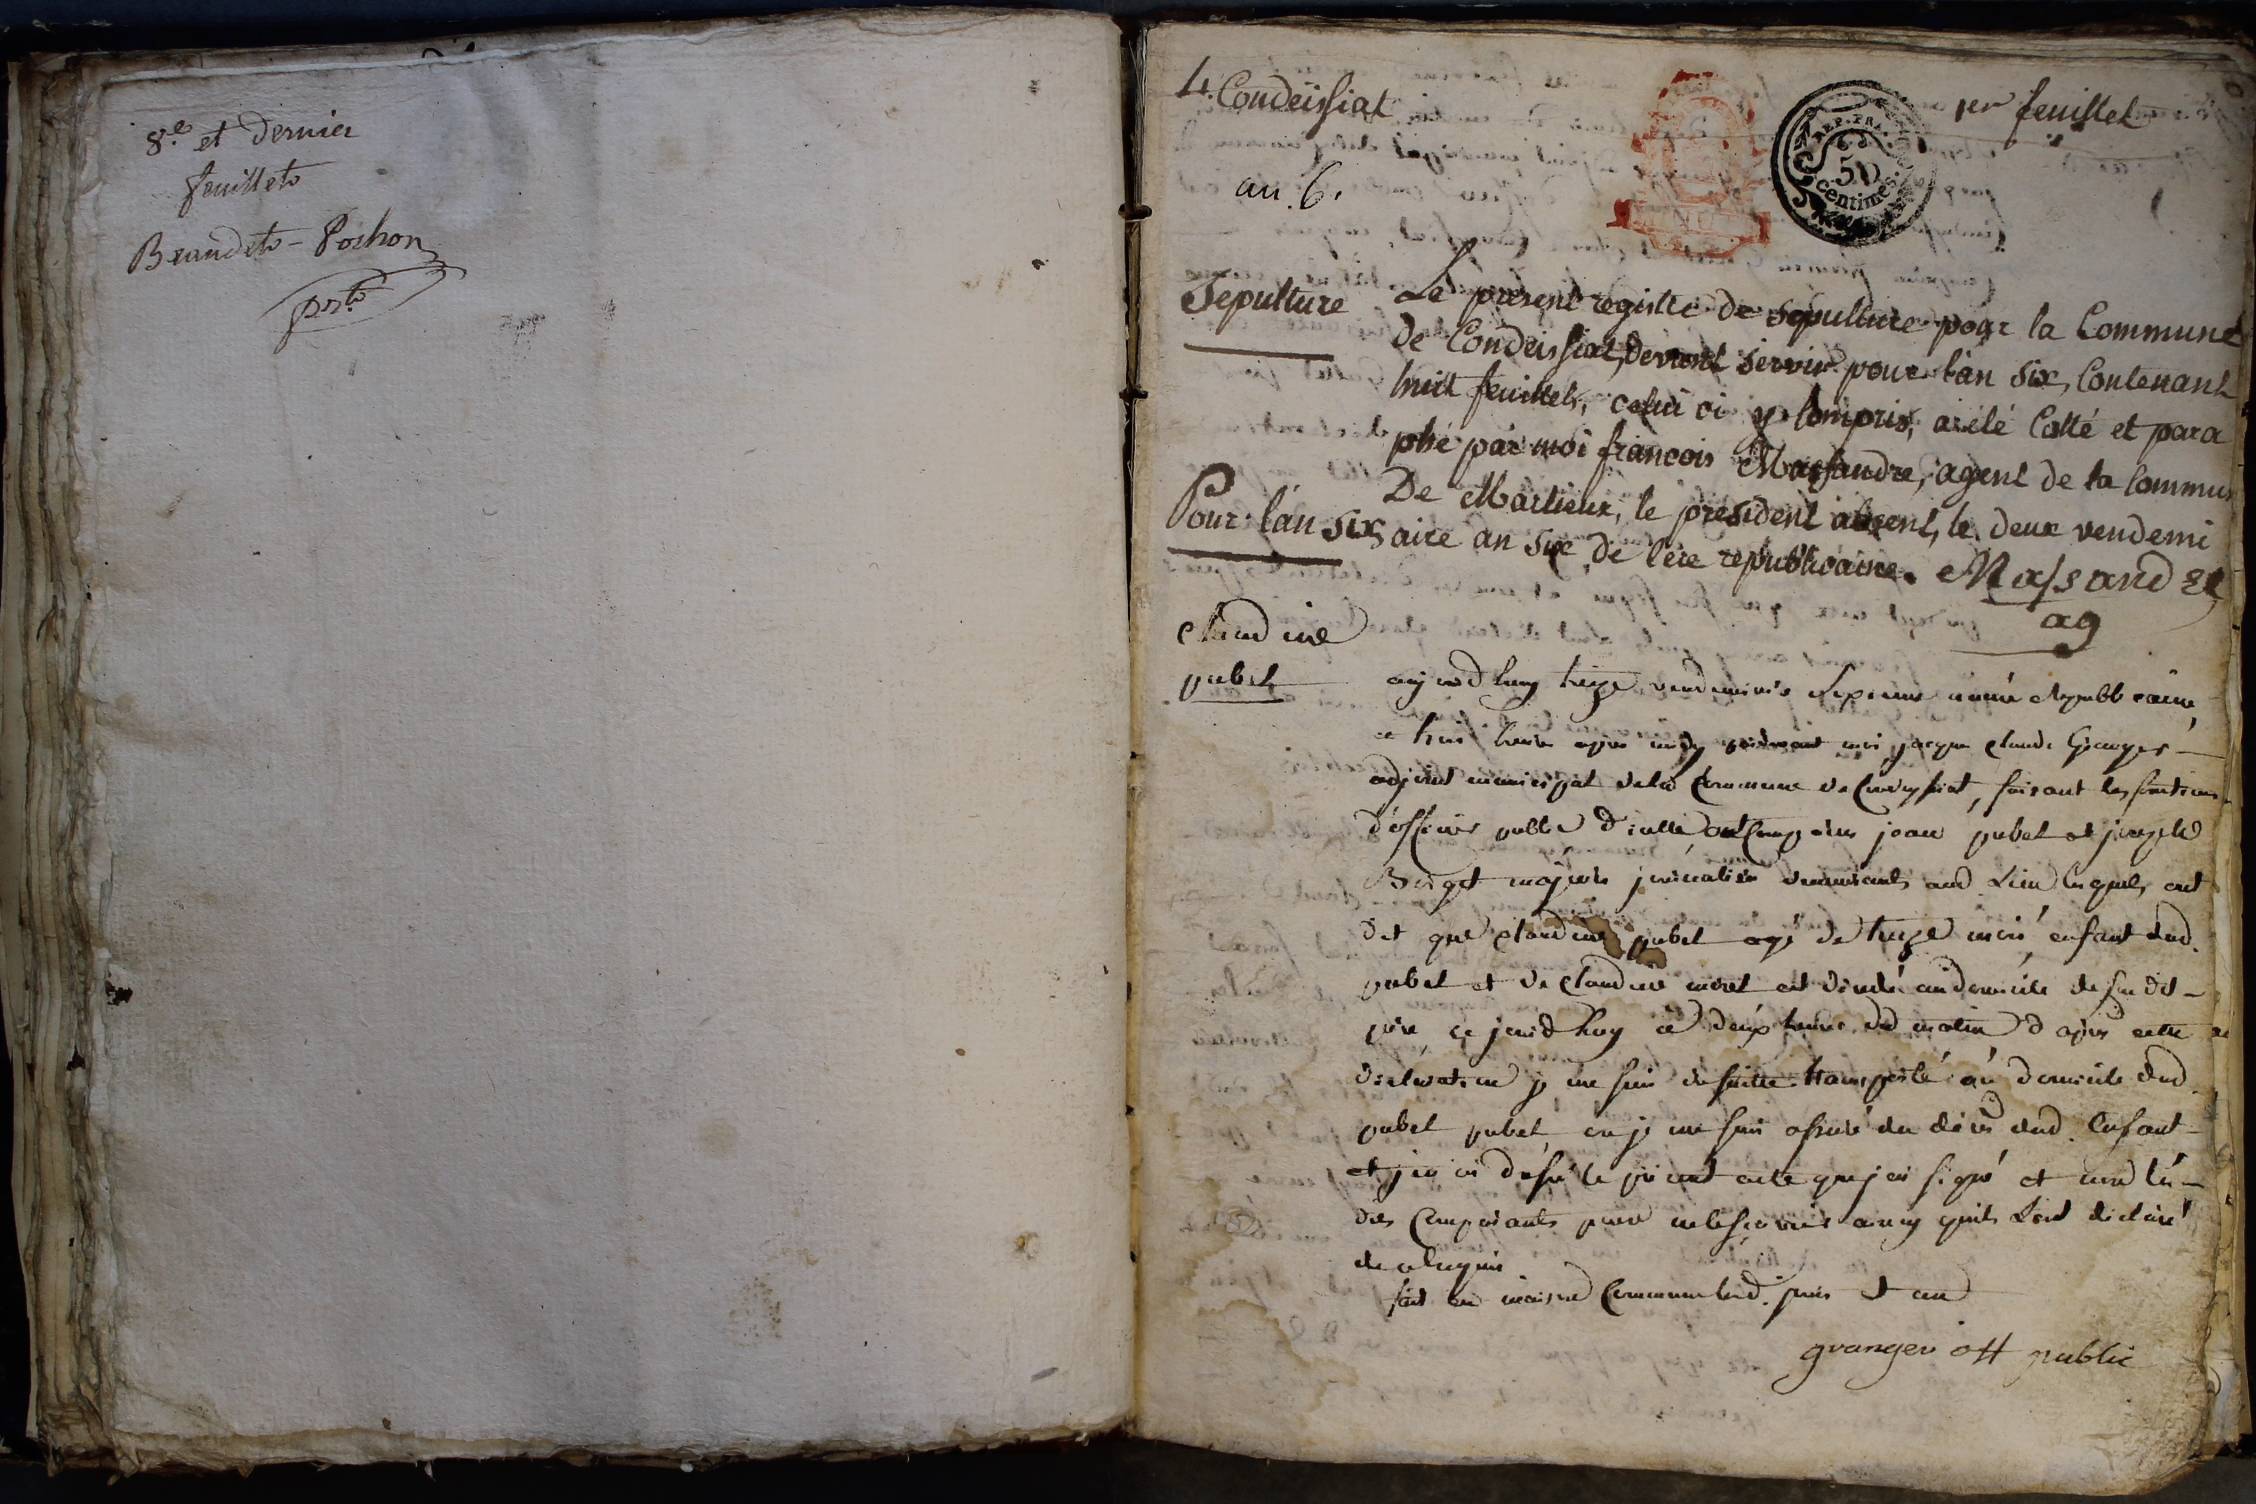 8.e et Dernier
feuillets
Beaudet - Pochon
prst
4. Condeissiat
1er feuillet
an 6.
REP. FRA.
50
centimes
Sepulture
Pour l'an six
Le present registre de sepulture pour la Commune
de Condeissiat, devant servir pour l'an six, Contenant
huit feuillets, celui ci y Compris, a été Cotté et para
phé par moi francois Massandre, agent de la Commun
De Marlieux, le président absent, le deux vendemi
aire an six de l'ere republicaine. Massandre
ag
claudine
pubet
aujourdhuy treize vendemiere sixieme année Republicaine
a huit heure apres midy devant moi jacque claude Granger
adjoint municipal de la Commune de Condeyssiat, faisant les fonctions
d'officier public d'icelle ont Comparus jean pubet et joseph
majeurs journalier demeurants aud. Lieu lesquels ont
dit que claudine pubet agé de treize mois enfant dud.
pubet et de claudine moret est décedé au domicile de son dit
pere ce jourdhuy a deux heures du matin d'apres cette
declaration je me suis de suitte transporté au domicile dud.
pubet pubet, ou je me suis assuré du décès dud. Enfant
et j'en ai dressé le present acte que j'ai signé et non les
dits Comparants pour ne le scavoir ainsy quils L'ont declaré
de ce requis
fait en maison Commune led. jour et an
granger off public